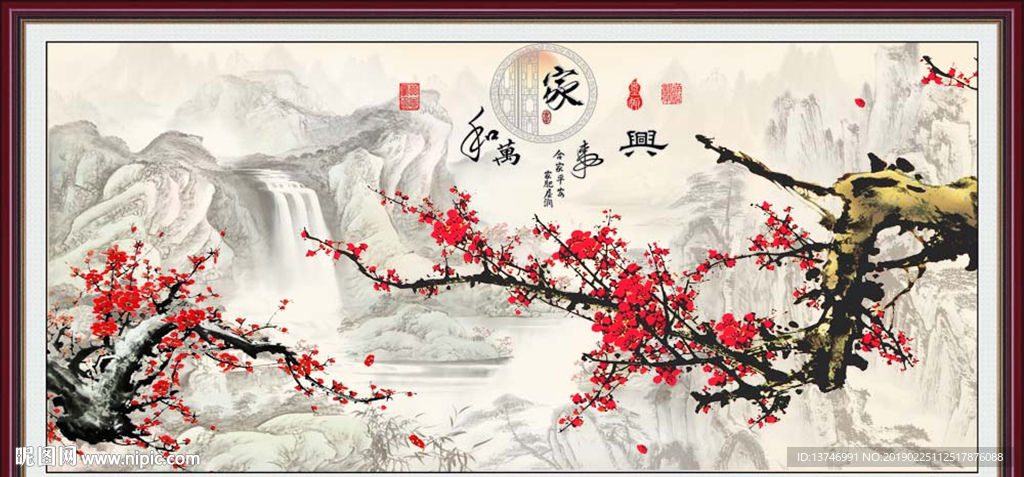 家
和
萬
事
興
合家平安
家肥屋潤
昵图网 www.nipic.com
ID:13746991 NO:20190225112517876088